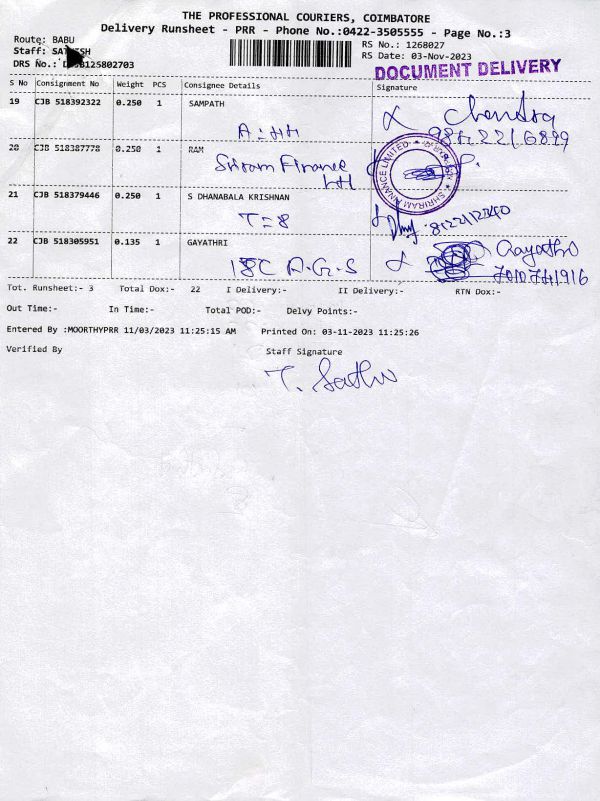 THE PROFESSIONAL COURIERS, COIMBATORE
Delivery Runsheet - PRR - Phone No.:0422-3505555 - Page No.:3
Route: BABU
RS No.: 1268027
Staff:
RS Date: 03-Nov-2023
DRS No.:
DOCUMENT DELIVERY
S No Consignment No Weight PCS Consignee Details Signature
19 CJB 518392322 0.250 1 SAMPATH
Chandra
20 CJB 518387778 0.250 1 RAM
Shriram Finance
21 CJB 518379446 0.250 1 S DHANABALA KRISHNAN
T=8
22 CJB 518305951 0.135 1 GAYATHRI
Gayathri
A.G.S
Tot. Runsheet:- 3 Total Dox:- 22 I Delivery:- II Delivery:- RTN Dox:-
Out Time:- In Time:- Total POD:- Delvy Points:-
Entered By :MOORTHYPRR 11/03/2023 11:25:15 AM Printed On: 03-11-2023 11:25:26
Verified By Staff Signature